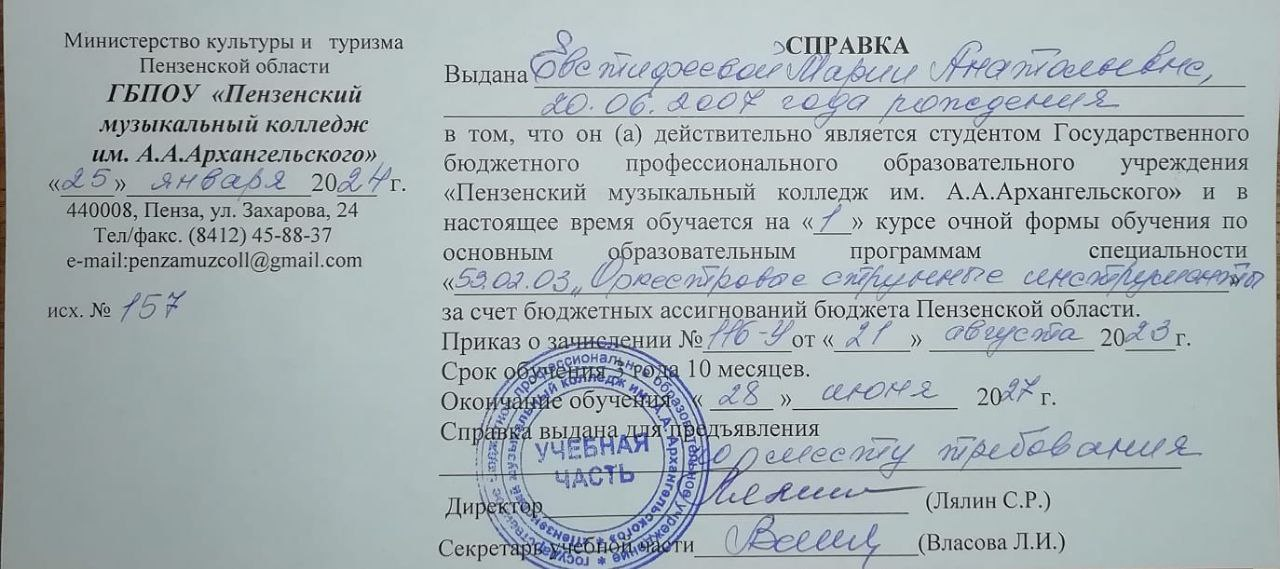 Министерство культуры и туризма
Пензенской области
ГБПОУ «Пензенский
музыкальный колледж
им. А.А.Архангельского»
«25» января 2024 г.
440008, Пенза, ул. Захарова, 24
Тел/факс. (8412) 45-88-37
e-mail:penzamuzcoll@gmail.com
исх. № 157
СПРАВКА
Выдана Евстифеевой Марии Анатольевне,
20.06.2007 года рождения
в том, что он (а) действительно является студентом Государственного
бюджетного профессионального образовательного учреждения
«Пензенский музыкальный колледж им. А.А.Архангельского» и в
настоящее время обучается на «1» курсе очной формы обучения по
основным образовательным программам специальности
«53.02.03 „Оркестровые струнные инструменты»
за счет бюджетных ассигнований бюджета Пензенской области.
Приказ о зачислении № 116-У от «21» августа 2023 г.
Срок обучения 3 года 10 месяцев.
Окончание обучения « 28 » июня 2027 г.
Справка выдана для предъявления
по месту требования
Директор (Лялин С.Р.)
Секретарь учебной части (Власова Л.И.)
УЧЕБНАЯ
ЧАСТЬ